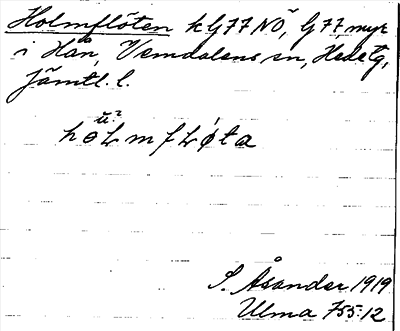 Holmflöten k G77 NÖ, G77, myr
i Hån, Vemdalens sn, Hede tg,
Jämtl. l.
ū?
hɵLmfLøta
S. Åsander 1919
Ulma 755:12